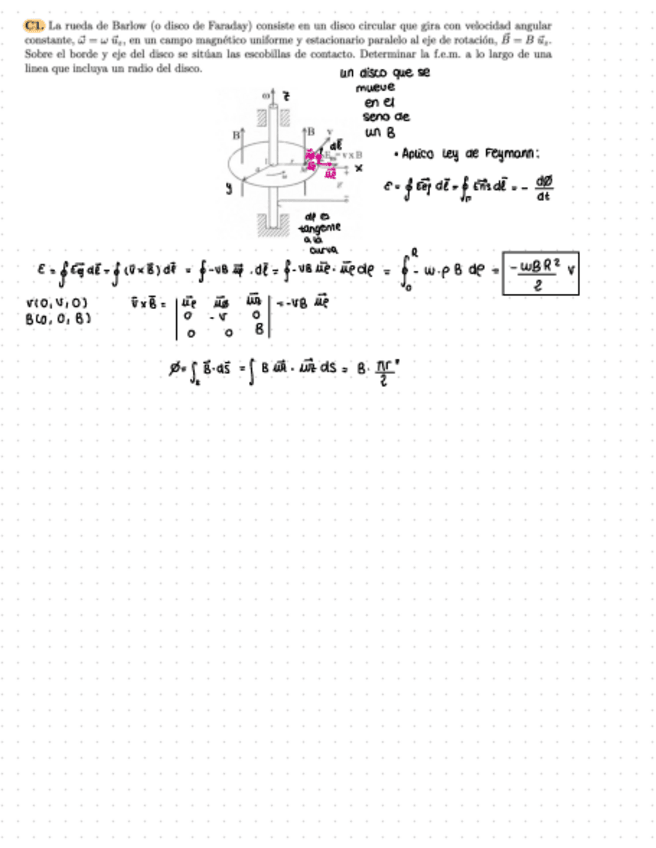 C1. La rueda de Barlow (o disco de Faraday) consiste en un disco circular que gira con velocidad angular
constante, ω⃗ = ω u⃗z, en un campo magnético uniforme y estacionario paralelo al eje de rotación, B⃗ = B u⃗z.
Sobre el borde y eje del disco se sitúan las escobillas de contacto. Determinar la f.e.m. a lo largo de una
línea que incluya un radio del disco.
un disco que se
mueve
en el
seno de
un B
ω z
B B v
dl
v x B
x
y
• Aplico Ley de Feymann:
ε = ∮ Eef dl = ∮ dl = - dØ/dt
dl es
tangente
a la
curva
ε = ∮ dl = ∮ (v x B) dl = ∮ -vB . dl = ∮ -vB uρ · uρ dρ = ∮₀ᴿ - w·ρ B dρ = -wBR²/2 v
v(0, v, 0)
B(0, 0, B)
v x B = | uρ
0 -v 0
0 0 B | = -vB uρ
Ø = ∫ B·ds = ∫ B · ds = B·